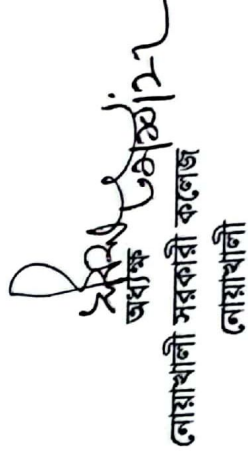 অধ্যক্ষ
নোয়াখালী সরকারী কলেজ
নোয়াখালী